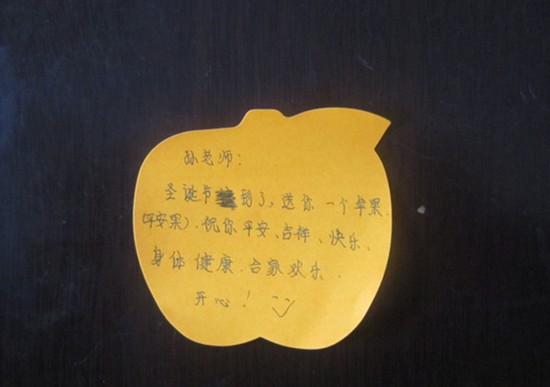 孙老师：
圣诞节到了，送你一个苹果
(平安果)．祝你平安、吉祥、快乐、
身体健康．合家欢乐．
开心！